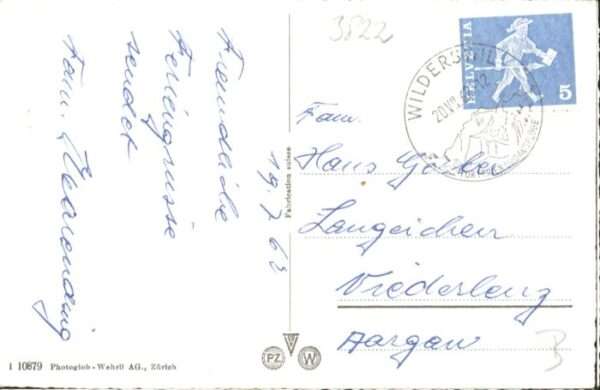 3822
HELVETIA
5
WILDERSWIL
20.VII.
Freundliche
Feriengrüsse
sendet
Fam.
19.7.63
Fabrication suisse
Fam.
Hans
Langeichen
Niederlenz
Aargau
B
PZ
W
1 10879 Photoglob-Wehrli AG., Zürich